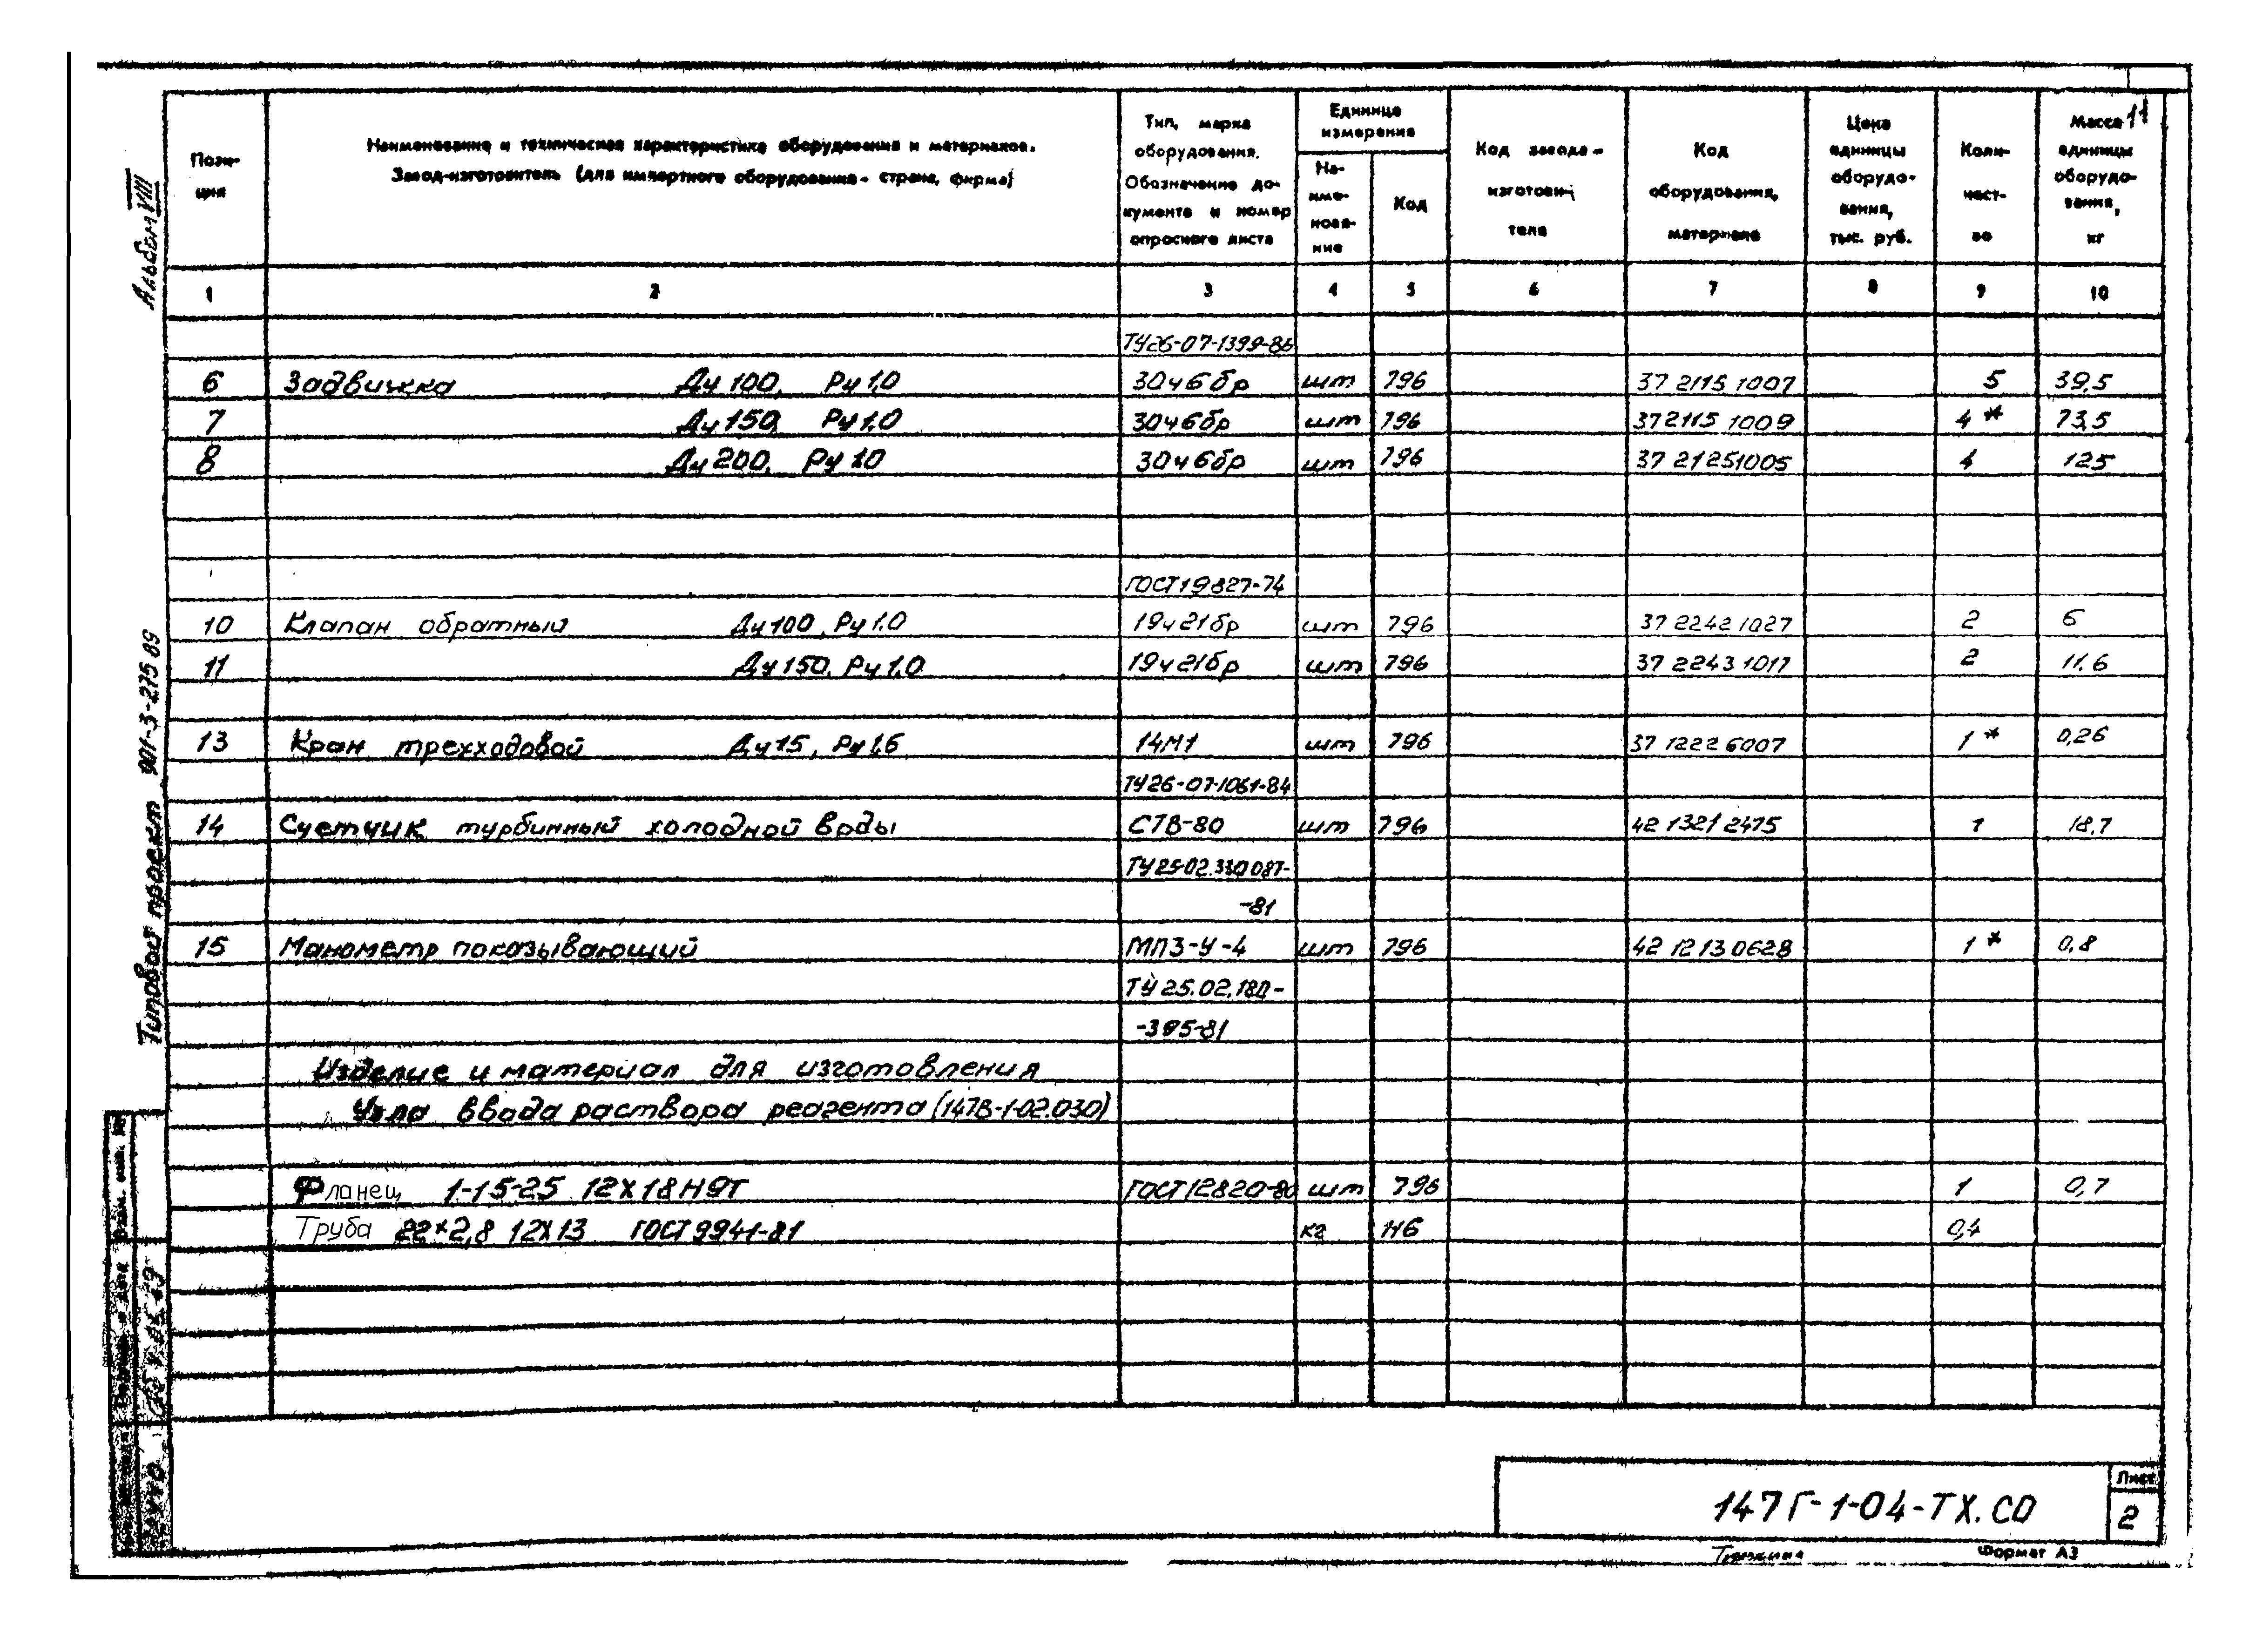 11
Альбом VIII
Типовой проект 901-3-275 89
Пози-
ция
Наименование и техническая характеристика оборудования и материалов.
Завод-изготовитель (для импортного оборудования - страна, фирма)
Тип, марка
оборудования.
Обозначение до-
кумента и номер
опросного листа
Единица
измерения
На-
име-
нова-
ние
Код
Код завода -
изготови-
теля
Код
оборудования,
материала
Цена
единицы
оборудо-
вания,
тыс. руб.
Коли-
чест-
во
Масса
единицы
оборудо-
вания,
кг
1 2 3 4 5 6 7 8 9 10
ТУ26-07-1399-86
6 Задвижка Ду 100, Ру 1,0 30ч6бр шт 796 37 2115 1007 5 39,5
7 Ду 150, Ру 1,0 30ч6бр шт 796 37 2115 1009 4 * 73,5
8 Ду 200, Ру 1.0 30ч6бр шт 796 37 2125 1005 4 125
ГОСТ 19827-74
10 Клапан обратный Ду 100, Ру 1.0 19ч21бр шт 796 37 2242 1027 2 6
11 Ду 150, Ру 1,0 19ч21бр шт 796 37 2243 1017 2 11.6
13 Кран трехходовой Ду 15, Ру 1,6 14М1 шт 796 37 1222 6007 1 * 0,26
ТУ26-07-1061-84
14 Счетчик турбинный холодной воды СТВ-80 шт 796 42 1321 2475 1 18,7
ТУ25-02.330087-
-81
15 Манометр показывающий МП3-У-4 шт 796 42 1213 0628 1 * 0,8
ТУ 25.02.180-
-395-81
Изделие и материал для изготовления
Узла ввода раствора реагента (147В-1-02.030)
Фланец 1-15-25 12Х18Н9Т ГОСТ 12820-80 шт 796 1 0,7
Труба 22×2,8 12Х13 ГОСТ 9941-81 кг 116 0,4
147Г-1-04-ТХ.СО
Лист
2
Формат А3